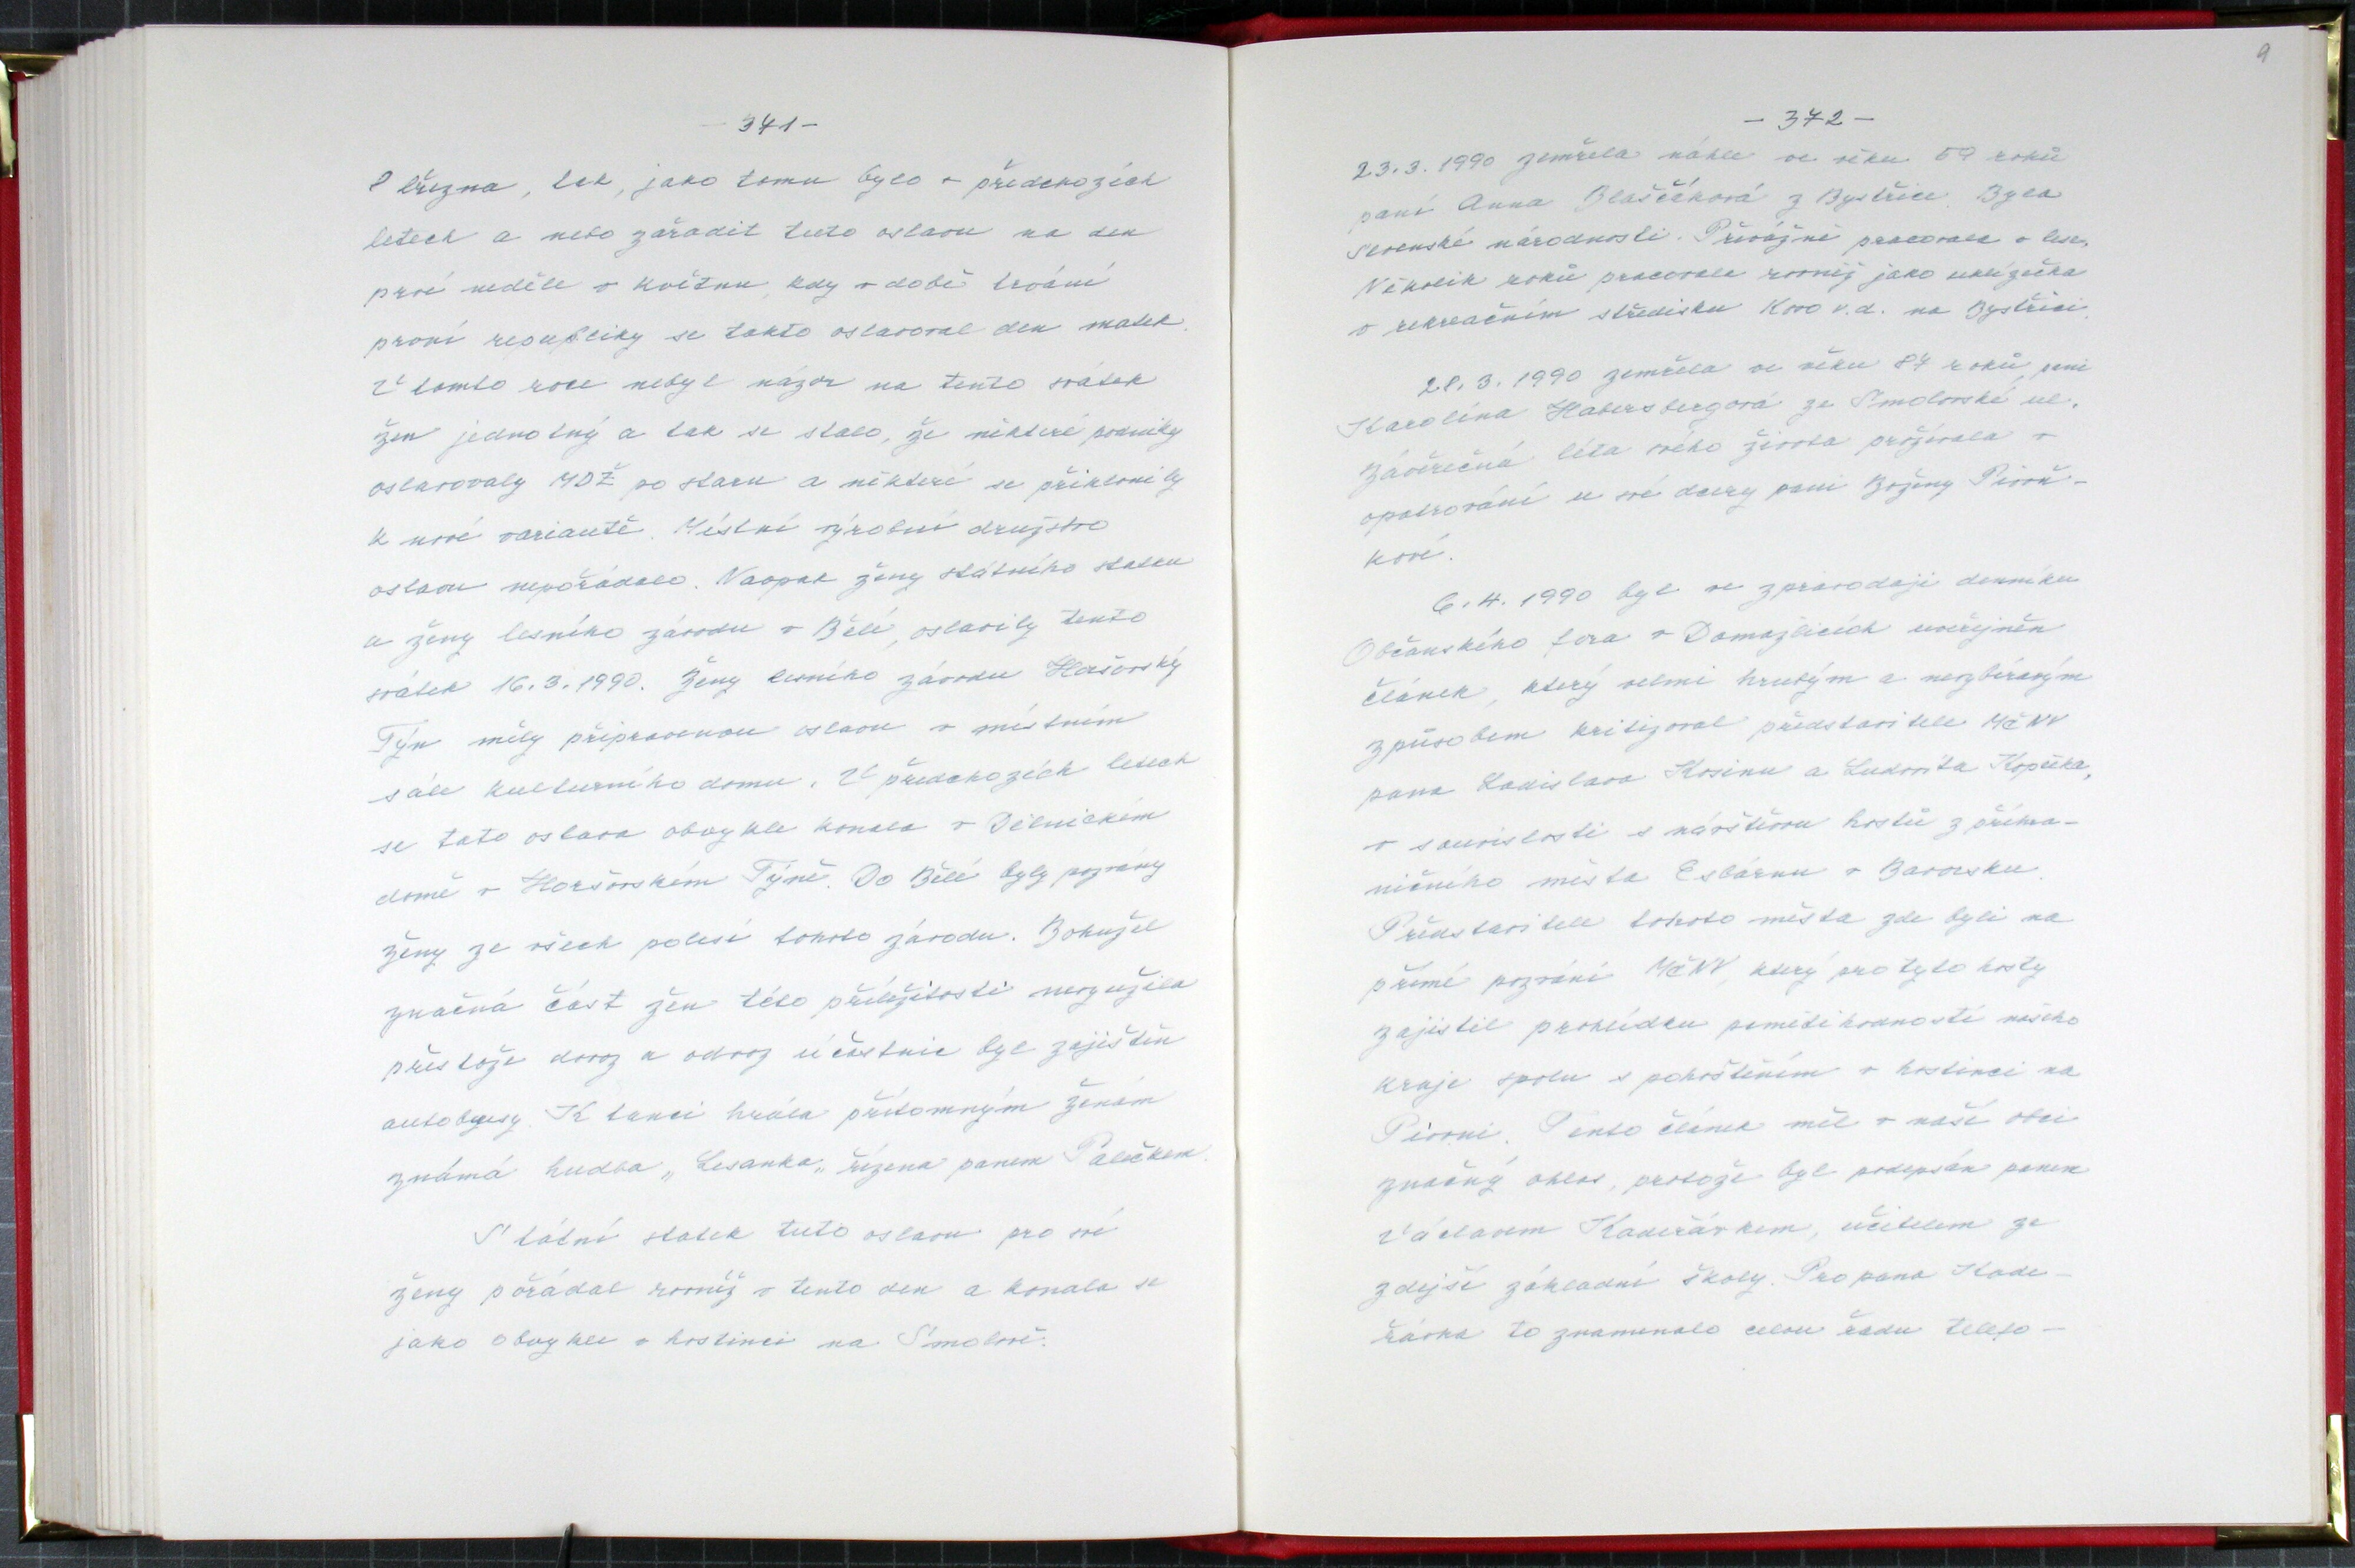 - 371 -
8 března, tak, jako tomu bylo v předchozích
letech a nebo zařadit tuto oslavu na den
prvé neděle v květnu, kdy v době trvání
první republiky se takto oslavoval den matek.
V tomto roce nebyl názor na tento svátek
žen jednotný a tak se stalo, že některé podniky
oslavovaly MDŽ po staru a některé se přiklonily
k nové variantě. Místní výrobní družstvo
oslavu nepořádalo. Naopak ženy státního statku
a ženy lesního závodu v Bělé, oslavily tento
svátek 16.3.1990. Ženy lesního závodu Horšovský
Týn měly připravenou oslavu v místním
sále kulturního domu. V předchozích letech
se tato oslava obvykle konala v Dělnickém
domě v Horšovském Týně. Do Bělé byly pozvány
ženy ze všech polesí tohoto závodu. Bohužel
značná část žen této příležitosti nevyužila
přestože dovoz a odvoz účastnic byl zajištěn
autobusy. K tanci hrála přítomným ženám
známá hudba „Lesanka„ řízena panem Paličkem.
Státní statek tuto oslavu pro své
ženy pořádal rovněž v tento den a konala se
jako obvykle v hostinci na Smolově.
9
- 372 -
23.3.1990 zemřela náhle ve věku 59 roků
paní Anna Blaščíková z Bystřice. Byla
slovenské národnosti. Převážně pracovala v lese.
Několik roků pracovala rovněž jako uklízečka
v rekreačním středisku Kovo v.d. na Bystřici.
28.3.1990 zemřela ve věku 87 roků, paní
Karolína Habersbergová ze Smolovské ul.
Závěrečná léta svého života prožívala v
opatrování u své dcery paní Boženy Pivoň-
kové.
6.4.1990 byl ve zpravodaji denníku
Občanského fora v Domažlicích uveřejněn
článek, který velmi hrubým a nevybíravým
způsobem kritizoval představitele MěNV
pana Ladislava Kosinu a Ludovíta Kopčíka,
v souvislosti s návštěvou hostů z příhra-
ničního města Eslárnu v Bavorsku.
Představitelé tohoto města zde byli na
přímé pozvání MěNV, který pro tyto hosty
zajistil prohlídku pamětihodností našeho
kraje spolu s pohoštěním v hostinci na
Pivoni. Tento článek měl v naší obci
značný ohlas, protože byl podepsán panem
Václavem Kadeřávkem, učitelem ze
zdejší základní školy. Pro pana Kade-
řávka to znamenalo celou řadu telefo-